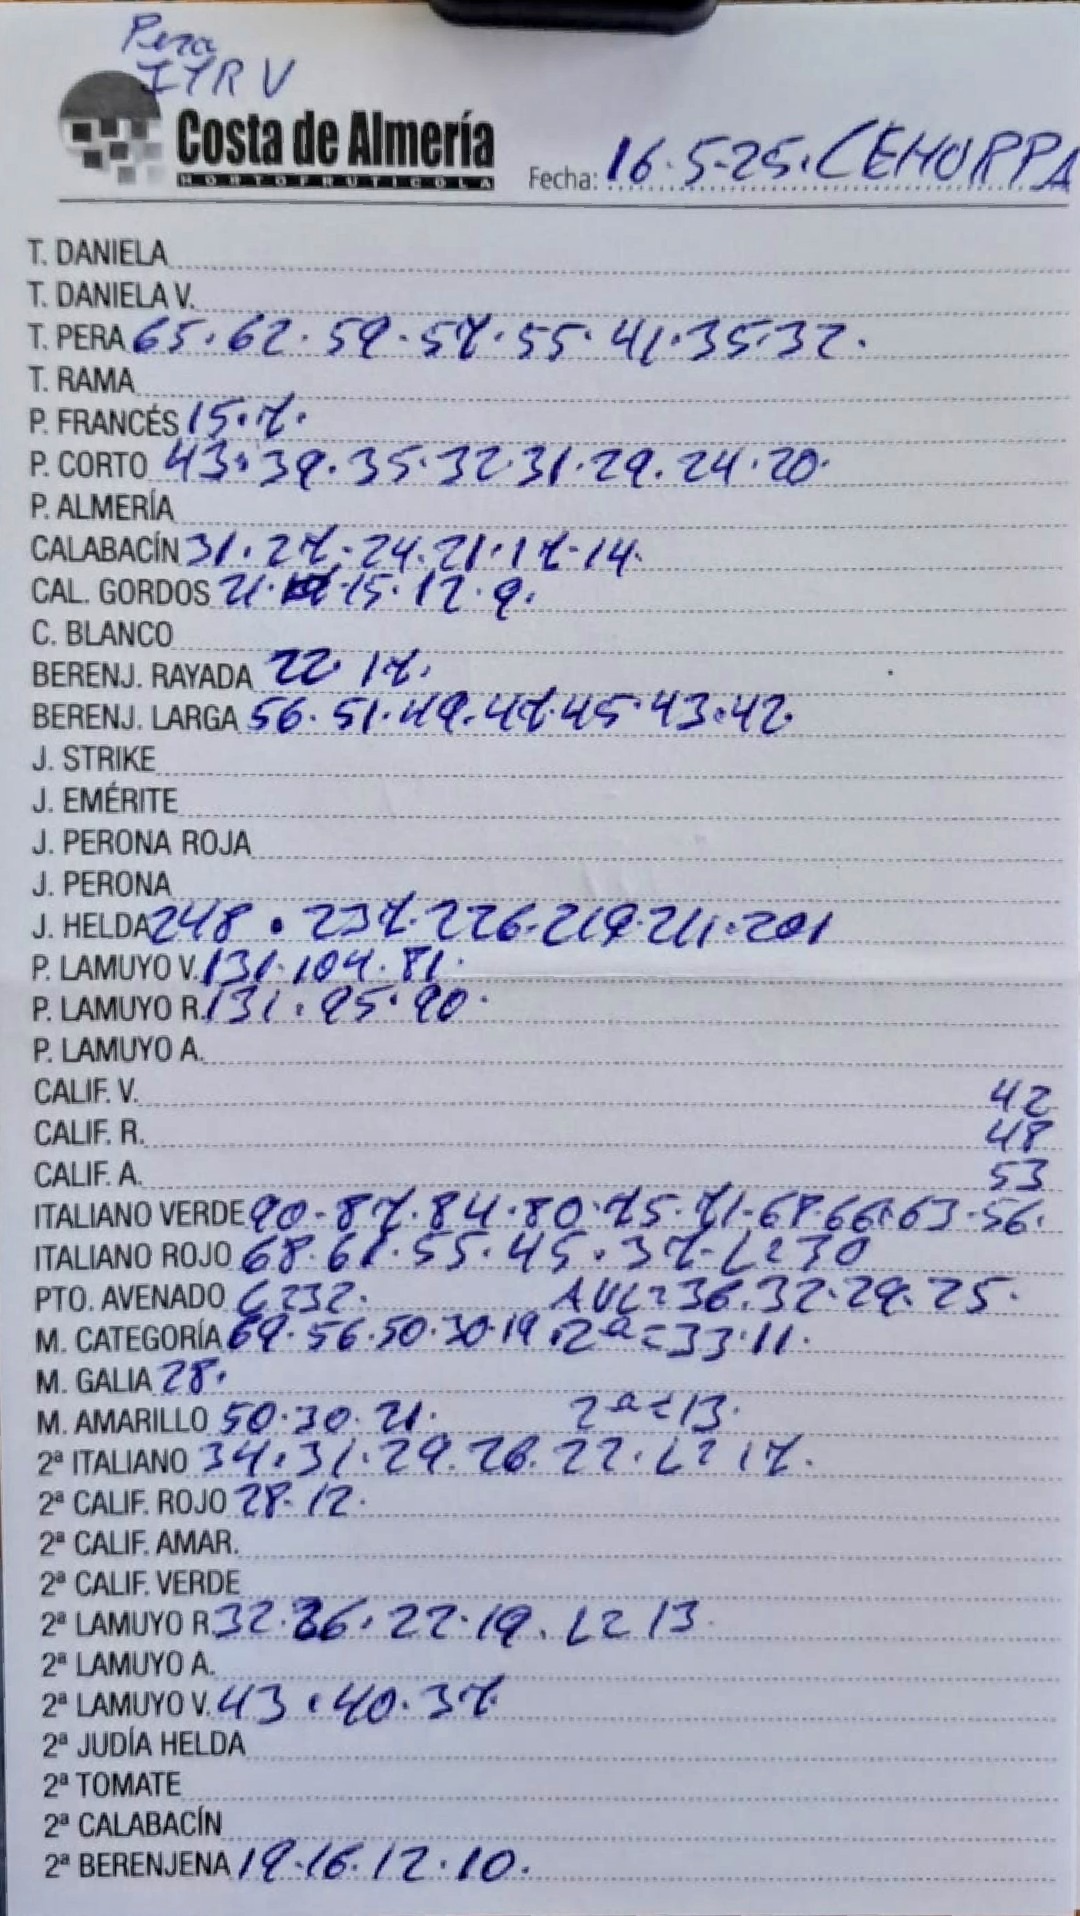 Pera
ITR V
Costa de Almería
HORTOFRUTICOLA
Fecha: 16.5-25. CEHORPA
T. DANIELA
T. DANIELA V.
T. PERA 65. 62. 59. 57. 55. 41. 35. 32.
T. RAMA
P. FRANCÉS 15. 7.
P. CORTO 43. 39. 35. 32 31. 29. 24. 20.
P. ALMERÍA
CALABACÍN 31. 27. 24. 21. 17. 14.
CAL. GORDOS 21. 15. 12. 9.
C. BLANCO
BERENJ. RAYADA 22 17.
BERENJ. LARGA 56. 51. 49. 47. 45. 43. 42.
J. STRIKE
J. EMÉRITE
J. PERONA ROJA
J. PERONA
J. HELDA 248. 237. 226. 219. 211. 201
P. LAMUYO V. 131. 104. 81.
P. LAMUYO R. 131. 95. 90.
P. LAMUYO A.
CALIF. V. 42
CALIF. R. 48
CALIF. A. 53
ITALIANO VERDE 90. 87. 84. 80. 75. 71. 68. 66. 63. 56.
ITALIANO ROJO 68. 61. 55. 45. 37. L = 30
PTO. AVENADO C = 32. AVL = 36. 32. 29. 25.
M. CATEGORÍA 69. 56. 50. 30. 19. 2ª = 33. 11.
M. GALIA 28.
M. AMARILLO 50. 30. 21. 2ª = 13.
2ª ITALIANO 34. 31. 29. 26. 22. L = 17.
2ª CALIF. ROJO 28. 12.
2ª CALIF. AMAR.
2ª CALIF. VERDE
2ª LAMUYO R. 32. 26. 22. 19. L = 13.
2ª LAMUYO A.
2ª LAMUYO V. 43. 40. 37.
2ª JUDÍA HELDA
2ª TOMATE
2ª CALABACÍN
2ª BERENJENA 19. 16. 12. 10.